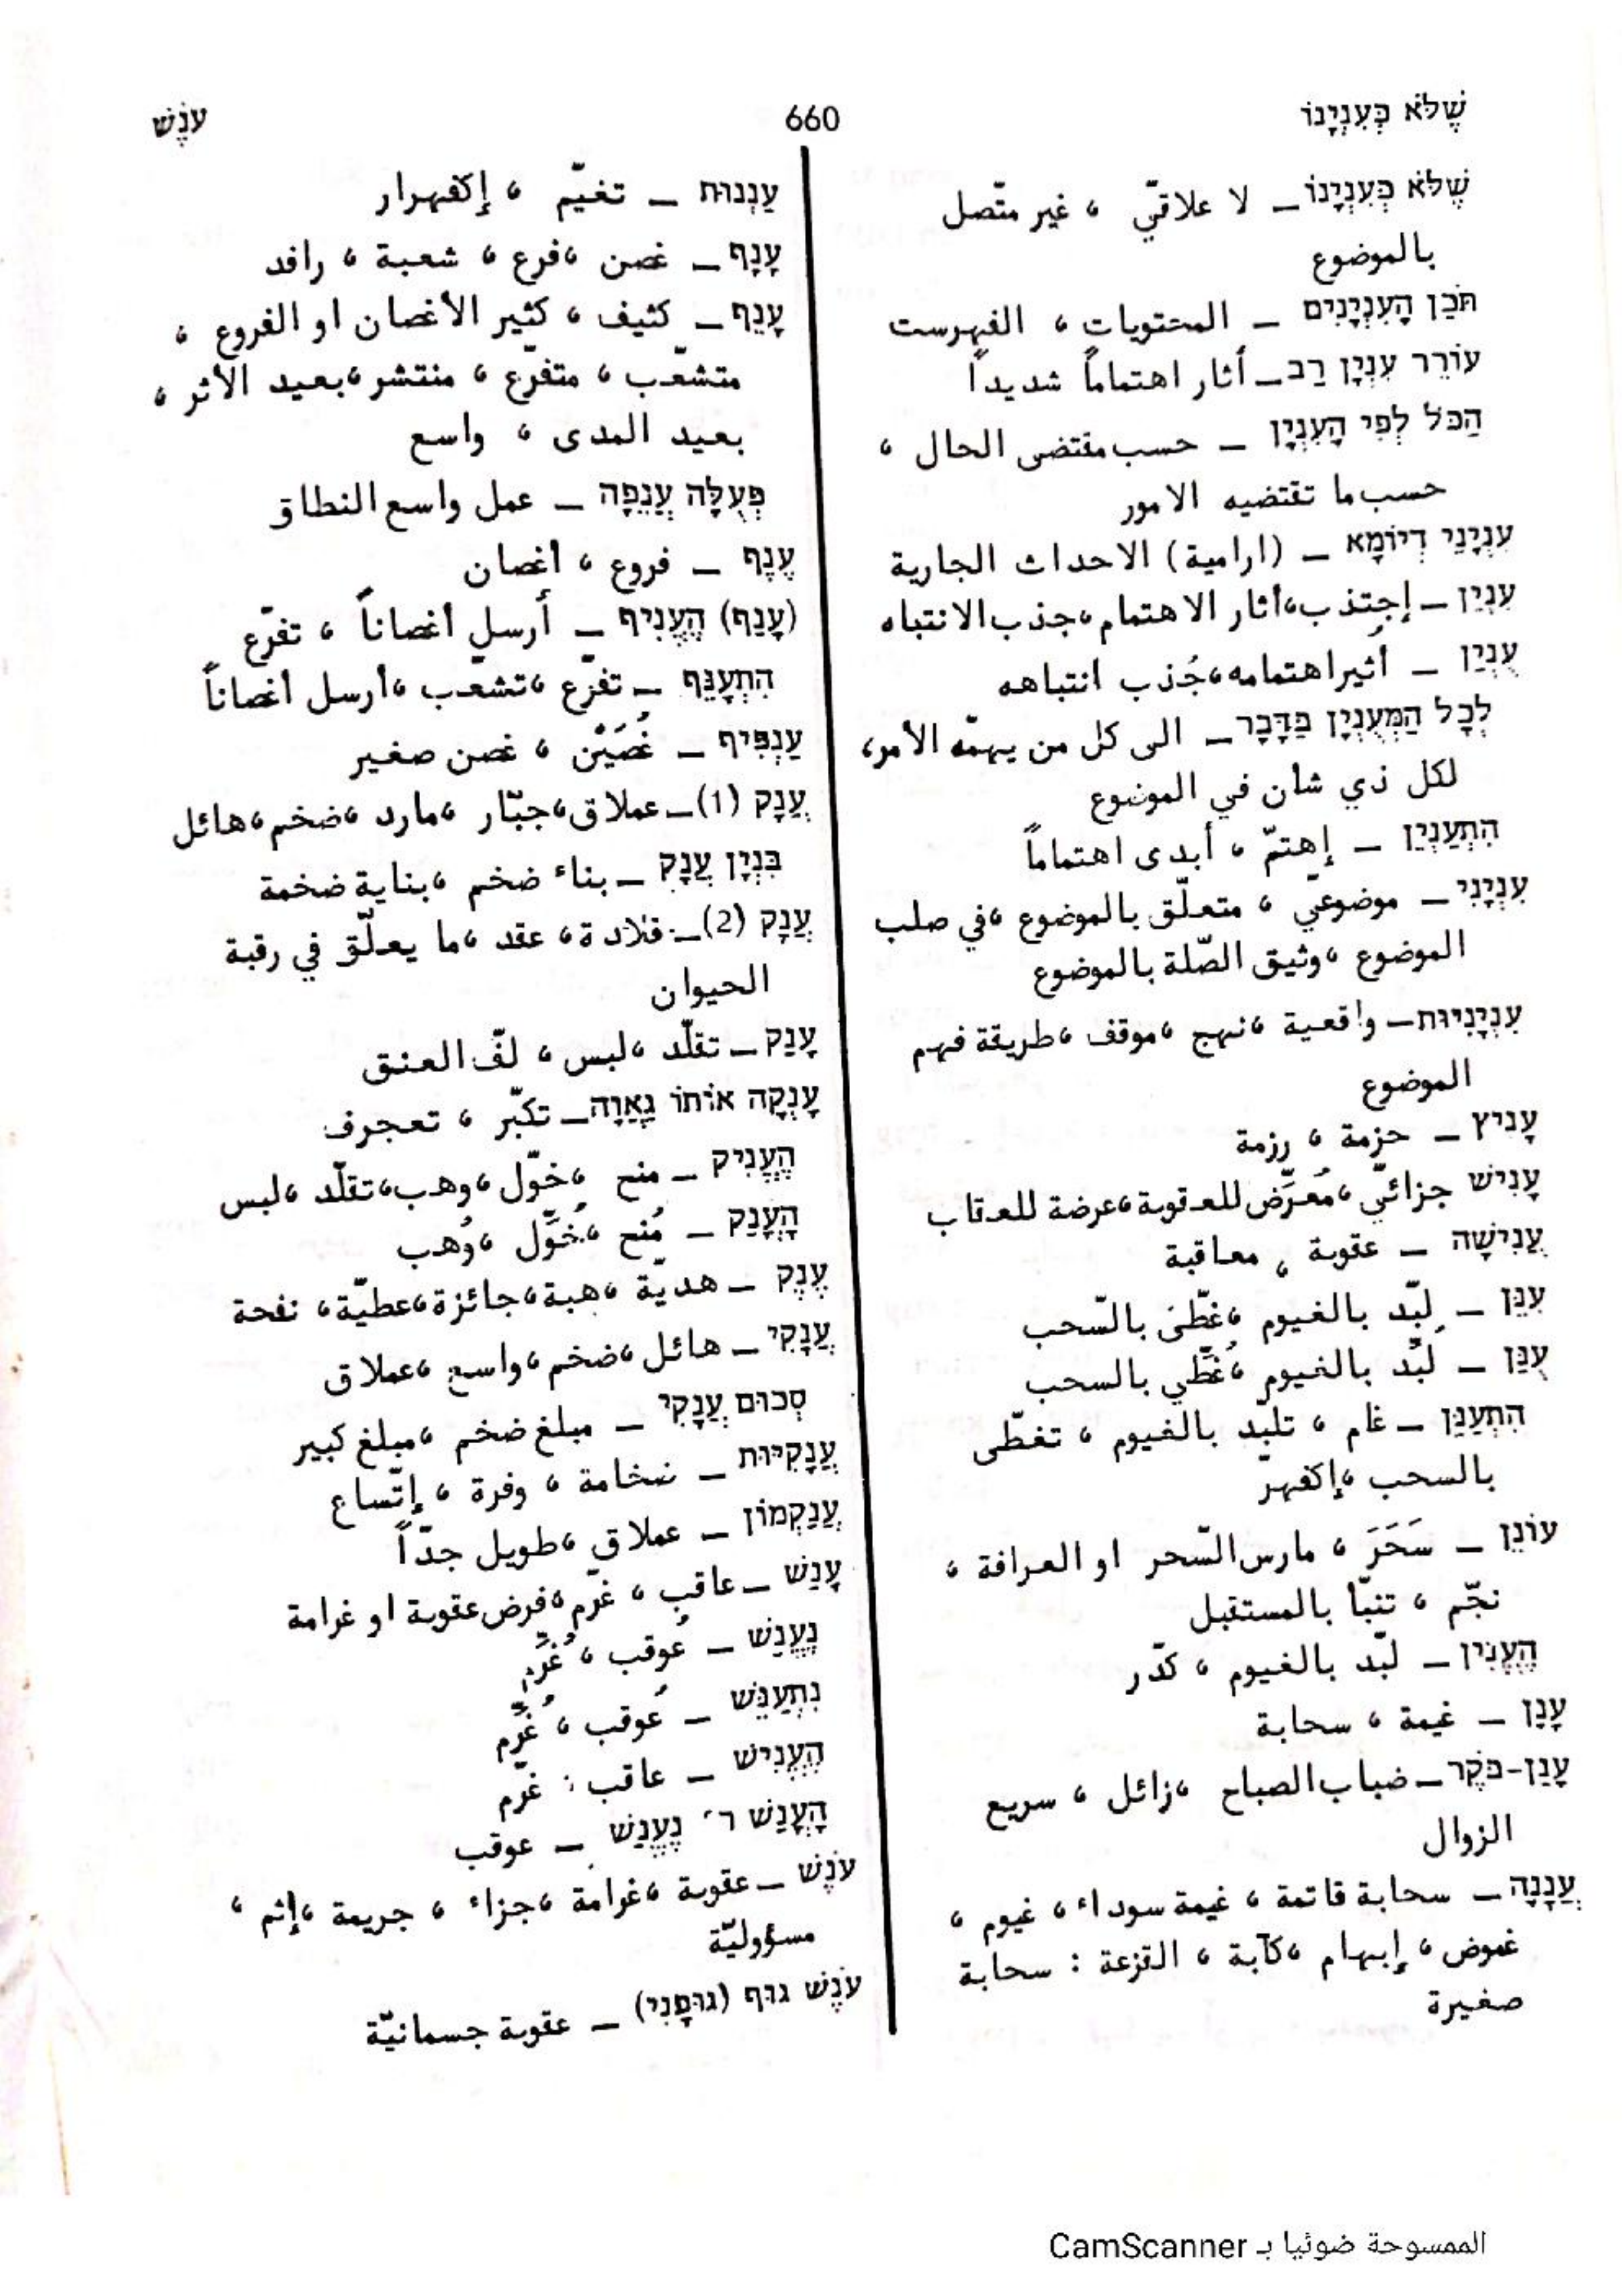 שֶׁלֹּא כְּעִנְיָנוֹ
660
עֹנֶשׁ
שֶׁלֹּא כְּעִנְיָנוֹ – لا علاقيّ ، غير متّصل
بالموضوع
תֹּכֶן הָעִנְיָנִים – المحتويات ، الفهرست
עוֹרֵר עִנְיָן רַב – أثار اهتماماً شديداً
הַכֹּל לְפִי הָעִנְיָן – حسب مقتضى الحال ،
حسب ما تقتضيه الامور
עִנְיָנֵי דְיוֹמָא – (ارامية) الاحداث الجارية
עִנְיֵן – إجتذب ، أثار الاهتمام ، جذب الانتباه
עֻנְיַן – أثير اهتمامه ، جُذب انتباهه
לְכָל הַמְּעֻנְיָן בַּדָּבָר – الى كل من يهمّه الأمر ،
لكل ذي شان في الموضوع
הִתְעַנְיֵן – إهتمّ ، أبدى اهتماماً
עִנְיָנִי – موضوعيّ ، متعلّق بالموضوع ، في صلب
الموضوع ، وثيق الصّلة بالموضوع
עִנְיָנִיּוּת – واقعية ، نهج ، موقف ، طريقة فهم
الموضوع
עָנִיץ – حزمة ، رزمة
עָנִישׁ جزائيّ ، مُعرَّض للعقوبة ، عرضة للعقاب
עֲנִישָׁה – عقوبة ، معاقبة
עִנֵּן – لبّد بالغيوم ، غطّى بالسّحب
עֻנַּן – لُبِّد بالغيوم ، غُطّي بالسحب
הִתְעַנֵּן – غام ، تلبّد بالغيوم ، تغطّى
بالسحب ، إكفهرّ
עוֹנֵן – سَحَرَ ، مارس السّحر او العرافة ،
نجّم ، تنبّا بالمستقبل
הֶעֱנִין – لبّد بالغيوم ، كدّر
עָנָן – غيمة ، سحابة
עֲנַן-בֹּקֶר – ضباب الصباح ، زائل ، سريع
الزوال
עֲנָנָה – سحابة قاتمة ، غيمة سوداء ، غيوم ،
غموض ، إبهام ، كآبة ، القزعة : سحابة
صغيرة
עַנְנוּת – تغيّم ، إكفهرار
עָנָף – غصن ، فرع ، شعبة ، رافد
עָנֵף – كثيف ، كثير الأغصان او الفروع ،
متشعّب ، متفرّع ، منتشر ، بعيد الأثر ،
بعيد المدى ، واسع
פְּעֻלָּה עֲנֵפָה – عمل واسع النطاق
עֶנֶף – فروع ، أغصان
(עָנַף) הֶעֱנִיף – أرسل أغصاناً ، تفرّع
הִתְעַנֵּף – تفرّع ، تشعّب ، أرسل أغصاناً
עַנְפִּיף – غُصَيْن ، غصن صغير
עֲנָק (1) – عملاق ، جبّار ، مارد ، ضخم ، هائل
בִּנְיַן עֲנָק – بناء ضخم ، بناية ضخمة
עֲנָק (2) – قلادة ، عقد ، ما يعلّق في رقبة
الحيوان
עָנַק – تقلّد ، لبس ، لفّ العنق
עָנְקָה אוֹתוֹ גַאֲוָה – تكبّر ، تعجرف
הֶעֱנִיק – منح ، خوّل ، وهب ، تقلّد ، لبس
הָעֳנַק – مُنح ، خُوّل ، وُهب
עֶנֶק – هديّة ، هبة ، جائزة ، عطيّة ، نفحة
עֲנָקִי – هائل ، ضخم ، واسع ، عملاق
סְכוּם עֲנָקִי – مبلغ ضخم ، مبلغ كبير
עֲנָקִיּוּת – ضخامة ، وفرة ، إتّساع
עֲנַקְמוֹן – عملاق ، طويل جدّاً
עָנַשׁ – عاقب ، غرّم ، فرض عقوبة او غرامة
נֶעֱנַשׁ – عُوقب ، غُرِّم
נִתְעַנֵּשׁ – عُوقب ، غُرِّم
הֶעֱנִישׁ – عاقب ، غرّم
הָעֳנַשׁ ר׳ נֶעֱנַשׁ – عوقب
עֹנֶשׁ – عقوبة ، غرامة ، جزاء ، جريمة ، إثم ،
مسؤوليّة
עֹנֶשׁ גּוּף (גּוּפָנִי) – عقوبة جسمانيّة
الممسوحة ضوئيا بـ CamScanner